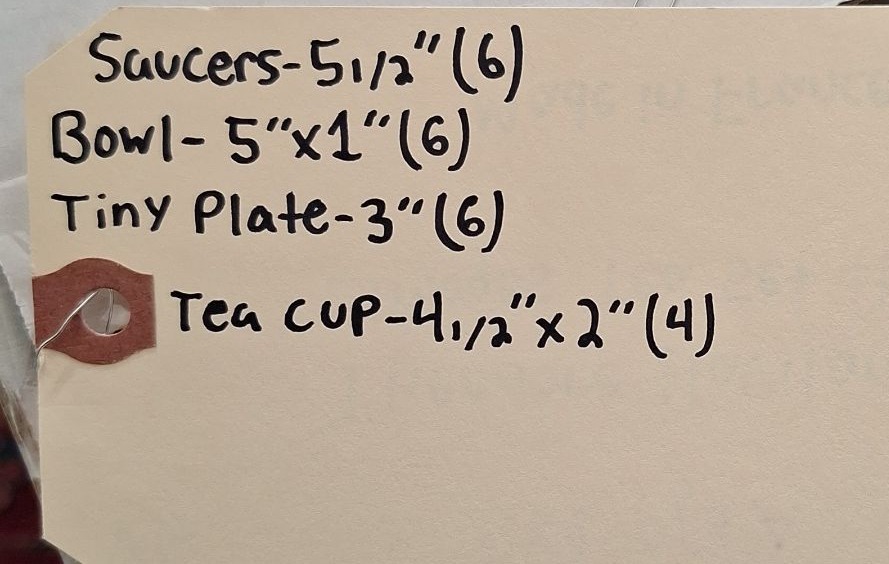 Saucers-5 1/2" (6)
Bowl- 5"x1" (6)
Tiny Plate-3" (6)
Tea CUP-4 1/2" x 2" (4)